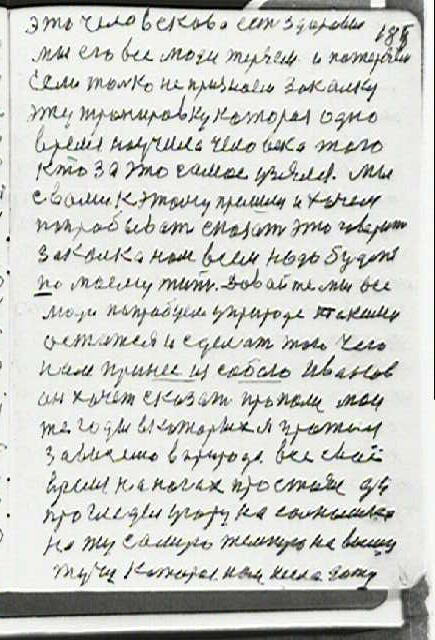 это человеково есть здоровия
185
мы его все люди теряем и потеряем
если только не признаем закалку
эту тренировку которая одно
время научила человека того
кто за это самое взялся. мы
с вами к этому пришли и хочем
попробыват сказат это говорит
закалка нам всем надо будет
по моему жить. Давайте мы все
люди попробуем у природе такими
остатся и сделат того чего
нам принес из собою Иванов
он хочет сказат пропали мои
же годы в которых я
в природе все своё
время на ногах простояв да
на солнышко
на ту самую темную на вышу
тучу которая нам несла